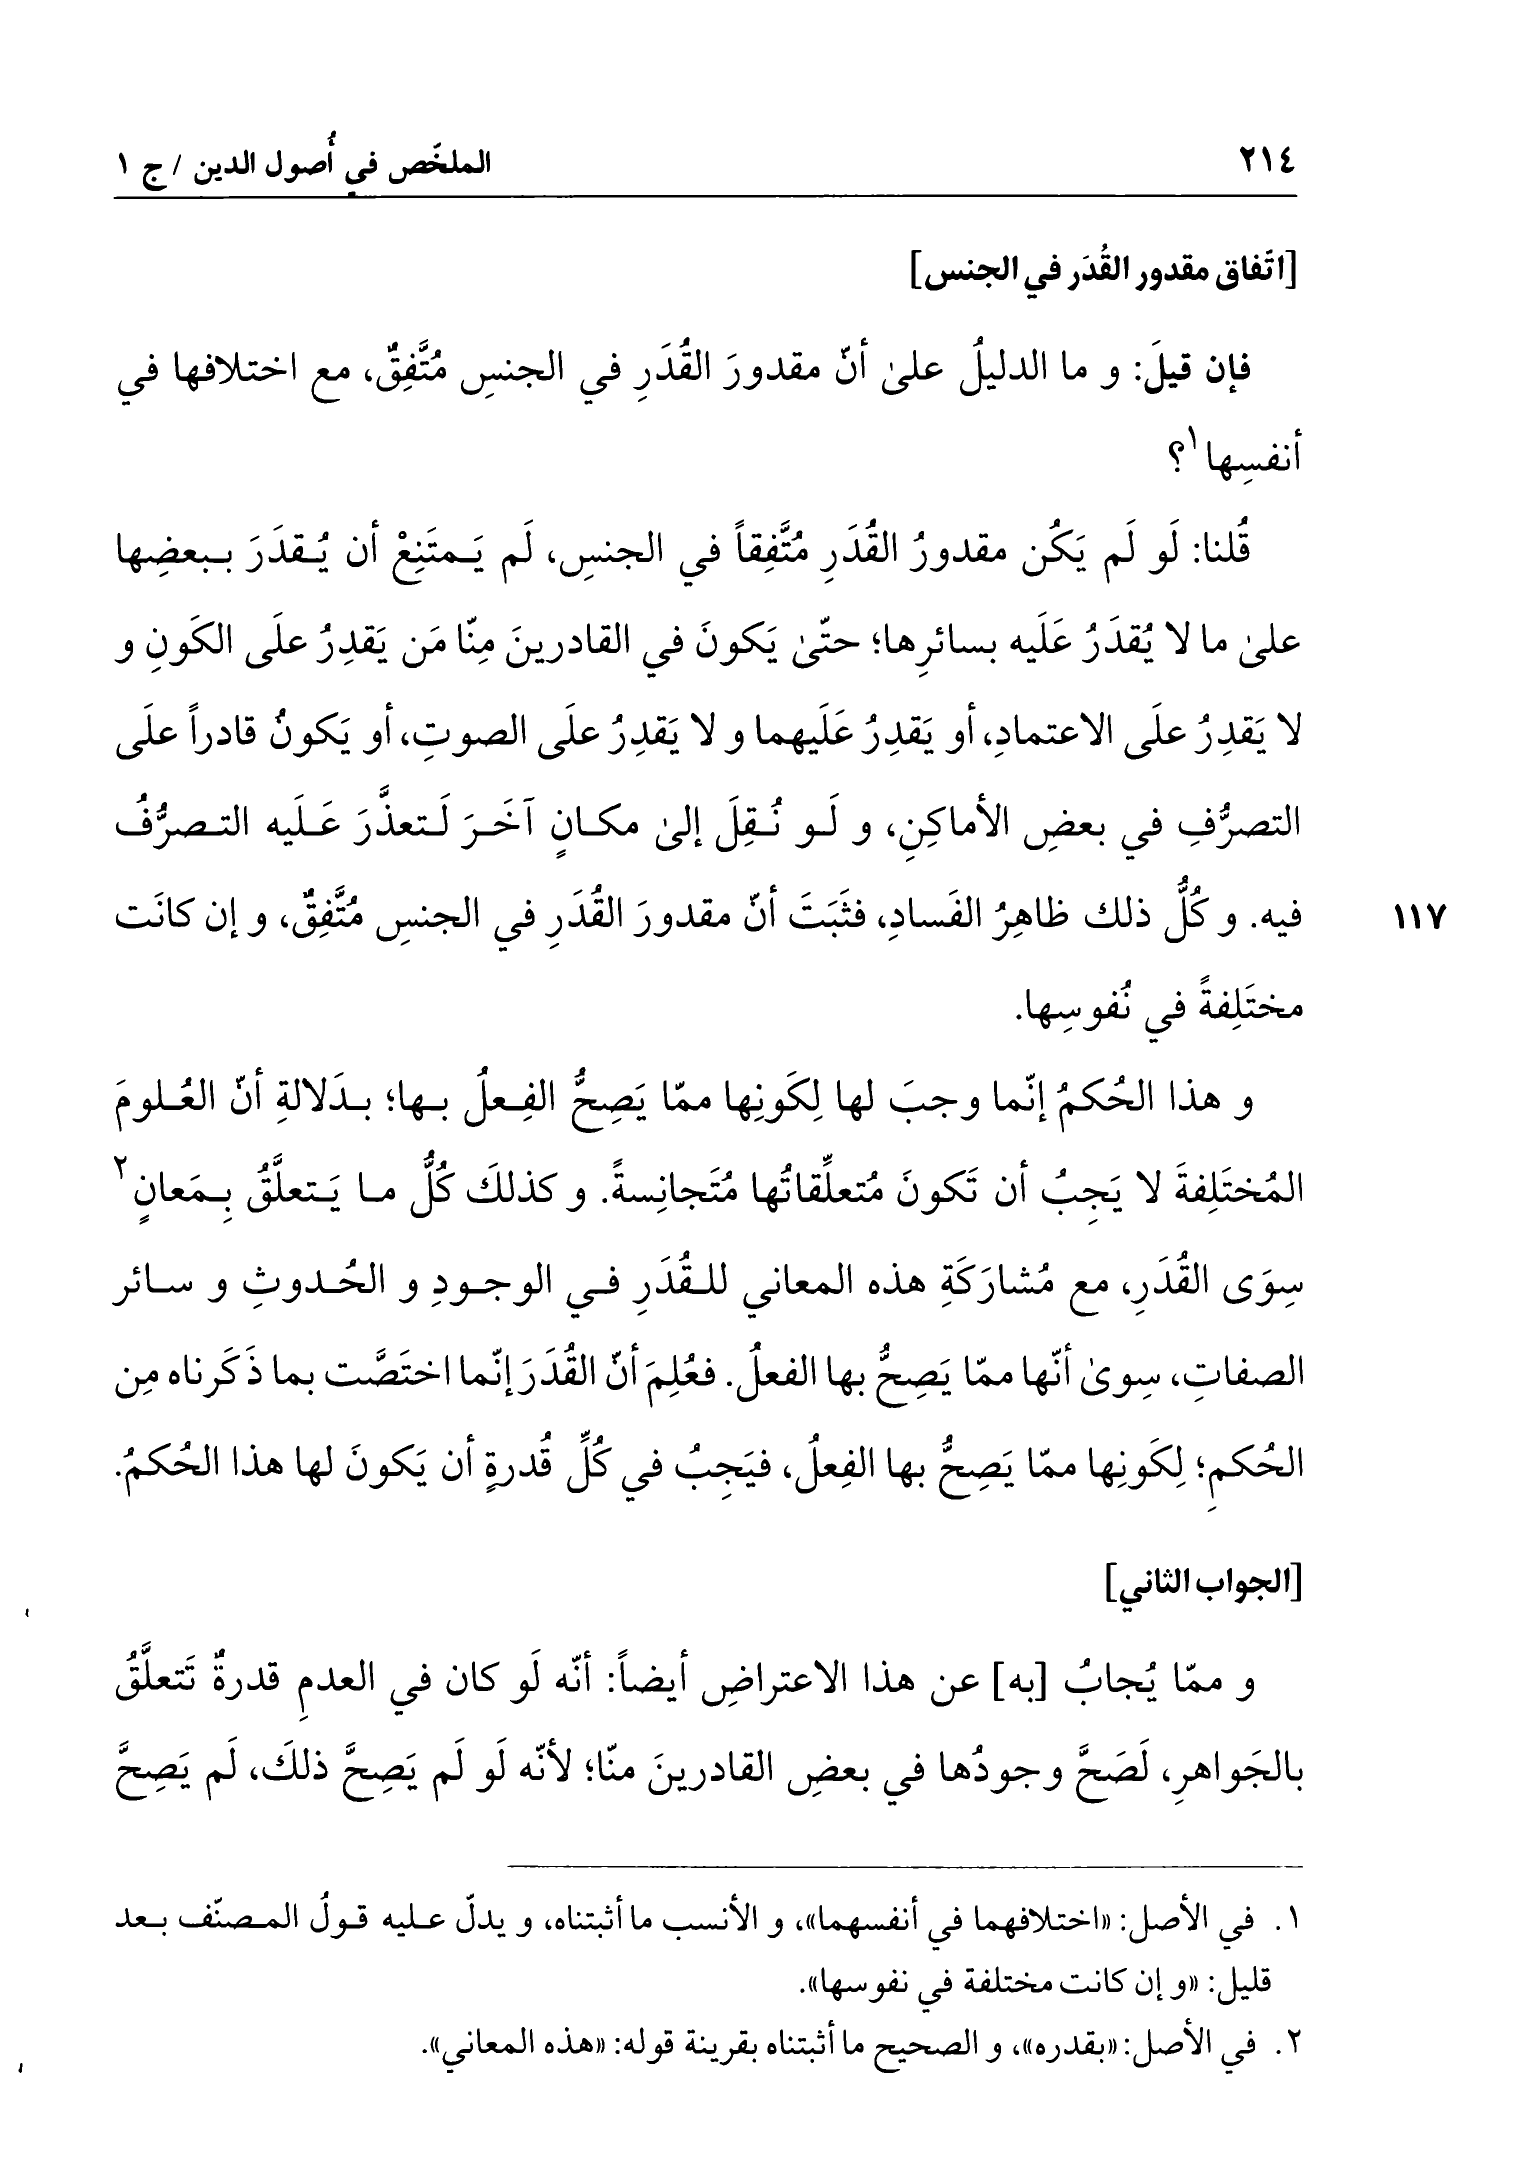 ٢١٤
الملخّص في أُصول الدين / ج ١
[اتّفاق مقدور القُدَر في الجنس]
فإن قيلَ: و ما الدليلُ علىٰ أنّ مقدورَ القُدَرِ في الجنسِ مُتَّفِقٌ، مع اختلافها في
أنفسِها١؟
قُلنا: لَو لَم يَكُن مقدورُ القُدَرِ مُتَّفِقاً في الجنسِ، لَم يَـمتَنِعْ أن يُـقدَرَ بـبعضِها
علىٰ ما لا يُقدَرُ عَلَيه بسائرِها؛ حتّىٰ يَكونَ في القادرينَ مِنّا مَن يَقدِرُ علَى الكَونِ و
لا يَقدِرُ علَى الاعتمادِ، أو يَقدِرُ عَلَيهما و لا يَقدِرُ علَى الصوتِ، أو يَكونُ قادراً علَى
التصرُّفِ في بعضِ الأماكِنِ، و لَـو نُـقِلَ إلىٰ مكـانٍ آخَـرَ لَـتعذَّرَ عَـلَيه التـصرُّفُ
فيه. و كُلُّ ذلك ظاهِرُ الفَسادِ، فثَبَتَ أنّ مقدورَ القُدَرِ في الجنسِ مُتَّفِقٌ، و إن كانَت
١١٧
مختَلِفةً في نُفوسِها.
و هذا الحُكمُ إنّما وجبَ لها لِكَونِها ممّا يَصِحُّ الفِـعلُ بـها؛ بـدَلالةِ أنّ العُـلومَ
المُختَلِفةَ لا يَجِبُ أن تَكونَ مُتعلِّقاتُها مُتَجانِسةً. و كذلكَ كُلُّ مـا يَـتعلَّقُ بِـمَعانٍ٢
سِوَى القُدَرِ، مع مُشارَكَةِ هذه المعاني للـقُدَرِ فـي الوجـودِ و الحُـدوثِ و سـائر
الصفاتِ، سِوىٰ أنّها ممّا يَصِحُّ بها الفعلُ. فعُلِمَ أنّ القُدَرَ إنّما اختَصَّت بما ذَكَرناه مِن
الحُكمِ؛ لِكَونِها ممّا يَصِحُّ بها الفِعلُ، فيَجِبُ في كُلِّ قُدرةٍ أن يَكونَ لها هذا الحُكمُ.
[الجواب الثاني]
و ممّا يُجابُ [به] عن هذا الاعتراضِ أيضاً: أنّه لَو كان في العدمِ قدرةٌ تَتعلَّقُ
بالجَواهرِ، لَصَحَّ وجودُها في بعضِ القادرينَ منّا؛ لأنّه لَو لَم يَصِحَّ ذلكَ، لَم يَصِحَّ
١. في الأصل: «اختلافهما في أنفسهما»، و الأنسب ما أثبتناه، و يدلّ عـليه قـولُ المـصنّف بـعد
قليل: «و إن كانت مختلفة في نفوسها».
٢. في الأصل: «بقدره»، و الصحيح ما أثبتناه بقرينة قوله: «هذه المعاني».